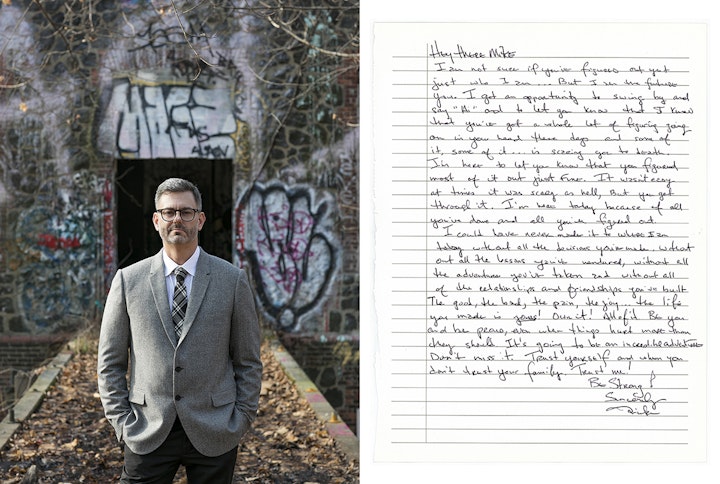 Hey there Mike
I am not sure if you've figured out yet
just who I am... But I am the future
you. I got an opportunity to swing by and
say "Hi" and to let you know that I know
that you've got a whole lot of figuring going
on in your head these days and some of
it, some of it... is scaring you to death.
I'm here to let you know that you figured
most of it out just fine. It wasn't easy
at times it was scary as hell, But you got
through it. I'm here today because of all
you've done and all you've figured out.
I could have never made it to where I am
today without all the decisions you've made. without
out all the lessons you've weathered, without all
the adventures you've taken and without all
of the relationships and friendships you've built
The good, the bad, the pain, the joy... the life
you made is yours! Own it! All of it. Be you
and be proud, even when things hurt more than
they should. It's going to be an incredible
Don't miss it. Trust yourself and when you
don't trust your family. Trust me!
Be Strong!
Sincerely